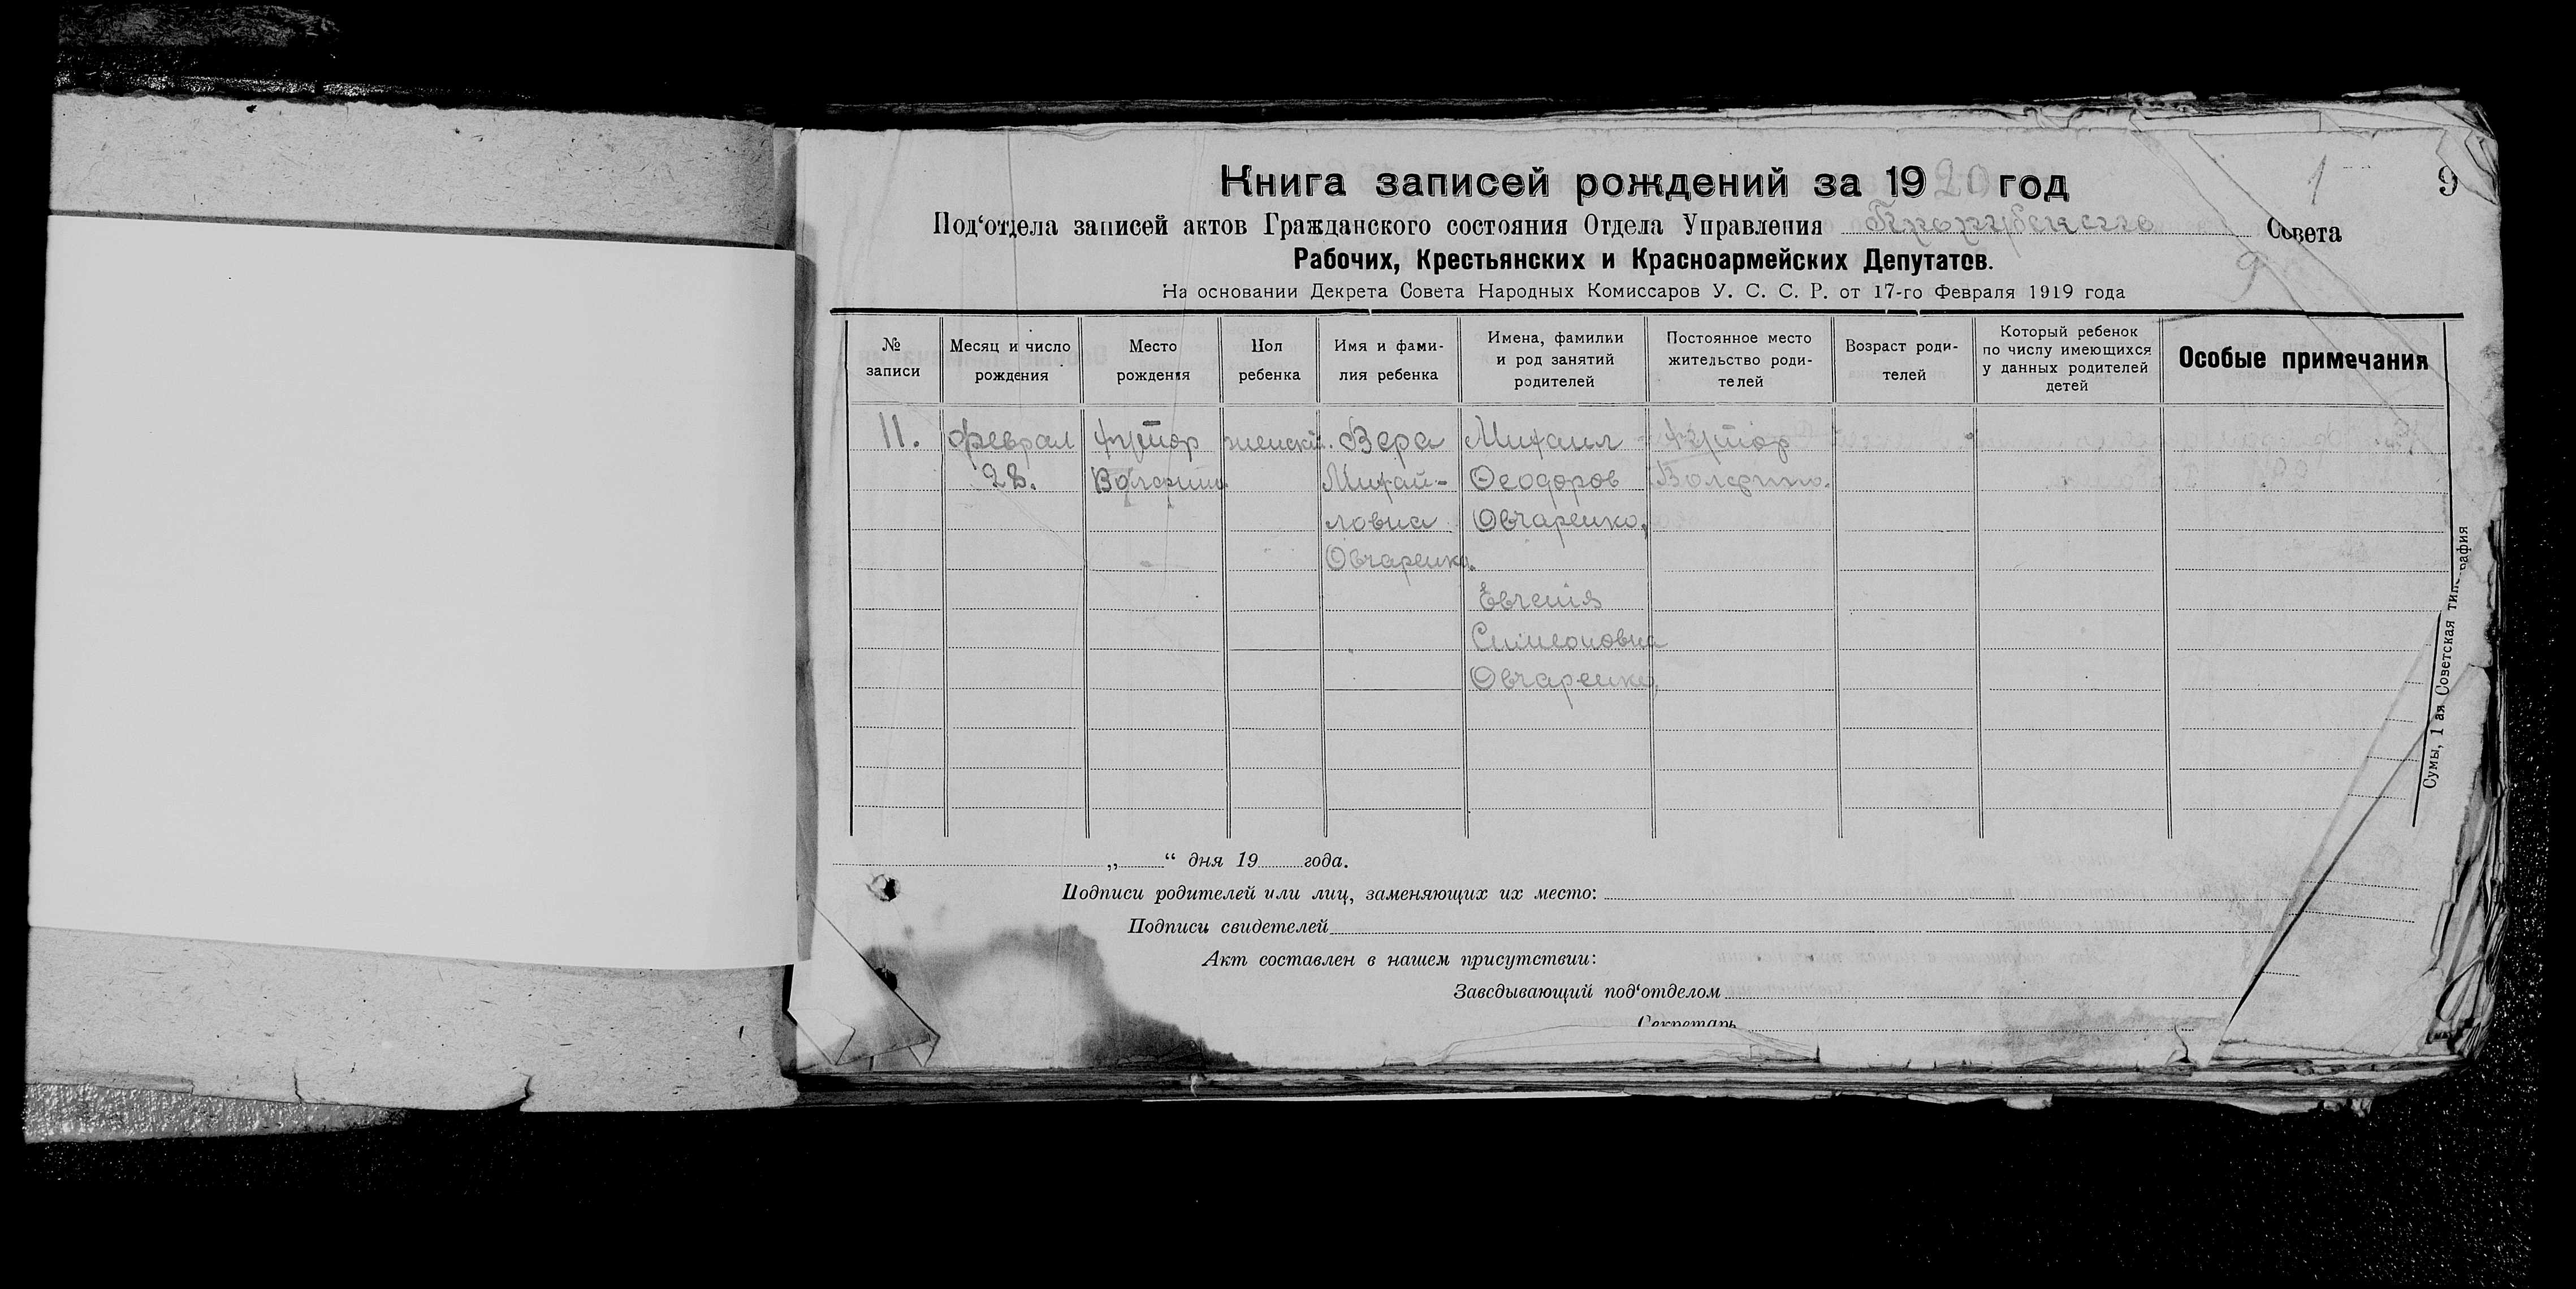 Книга записей рождений за 1920 год
1
9
Под‘отдела записей актов Гражданского состояния Отдела Управления Совета
9
Рабочих, Крестьянских и Красноармейских Депутатов.
На основании Декрета Совета Народных Комиссаров У. С. С. Р. от 17-го Февраля 1919 года
№ записи
Месяц и число рождения
Место рождения
Пол ребенка
Имя и фами-
лия ребенка
Имена, фамилии
и род занятий
родителей
Постоянное место
жительство роди-
телей
Возраст роди-
телей
Который ребенок
по числу имеющихся
у данных родителей
детей
Особые примечания
11.
феврал
28.
хутор
женскій.
Вера
Михай-
ловна
Овчаренко.
Михаил
Феодоров
Овчаренко,
Евгенія
Симеоновна
Овчаренко,
хутор
„ “ дня 19 года.
Подписи родителей или лиц, заменяющих их место:
Подписи свидетелей
Акт составлен в нашем присутствии:
Заведывающий под‘отделом
Секретарь
Сумы, 1 ая Советская типография